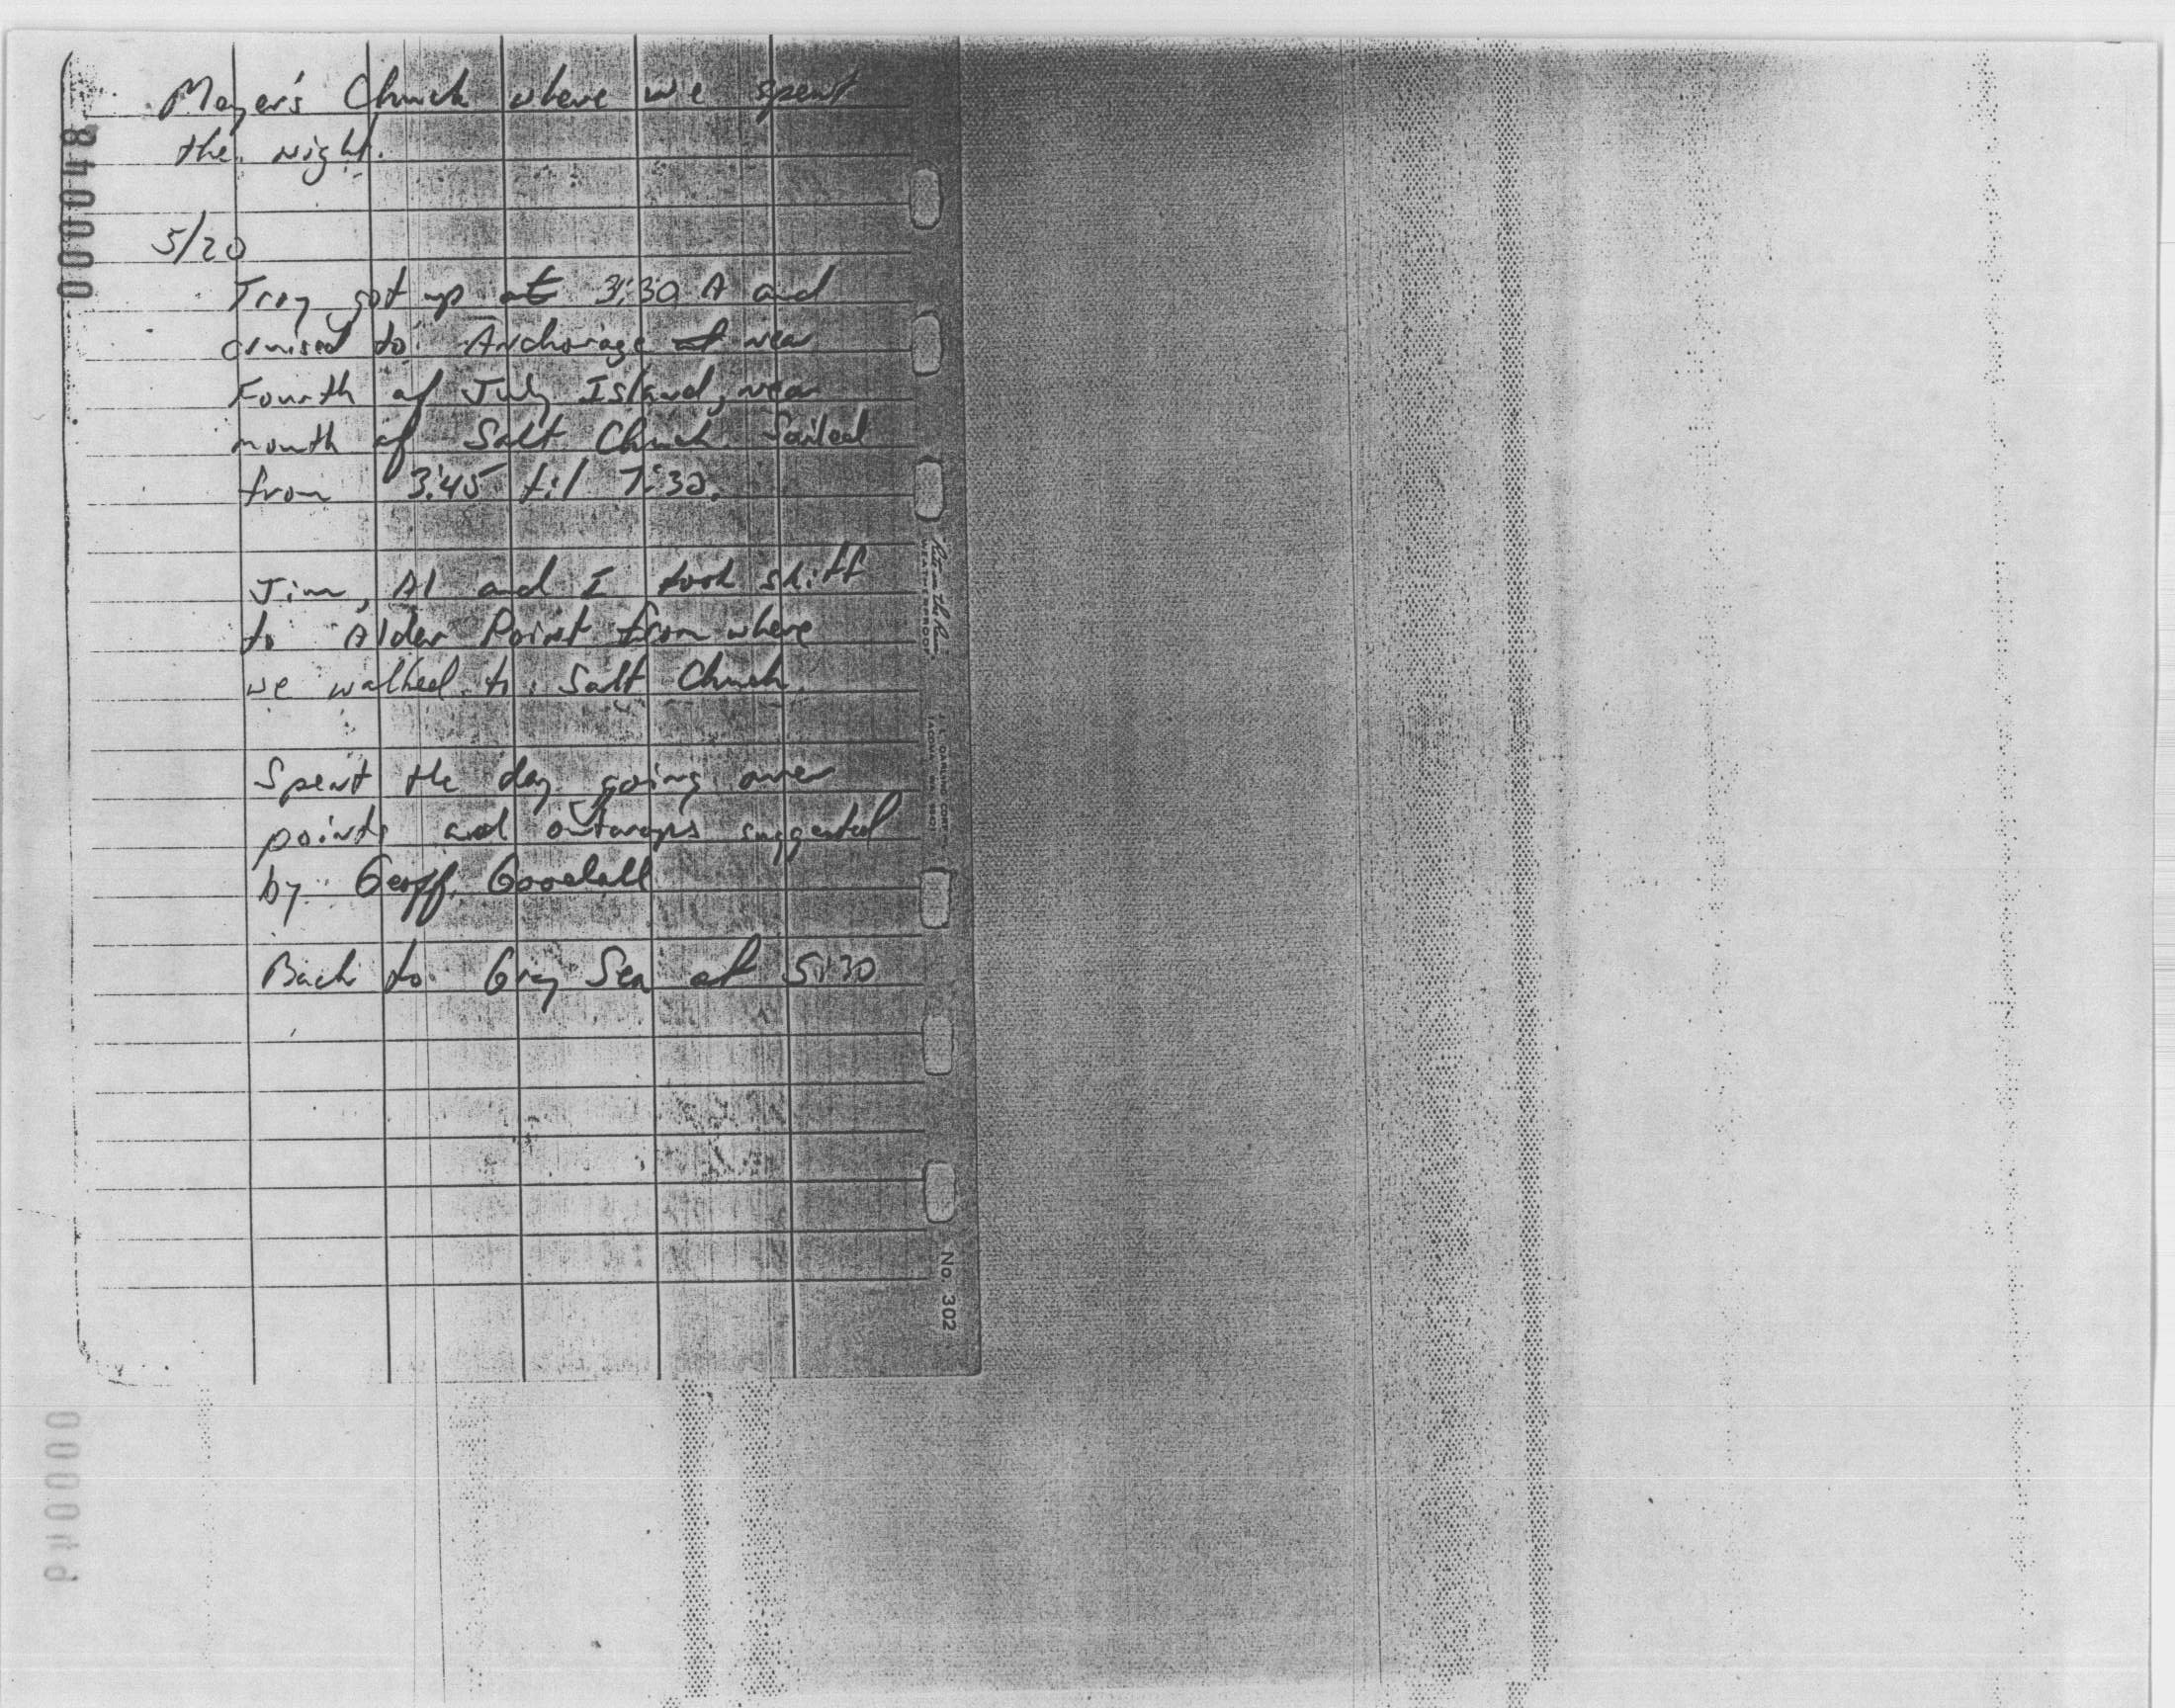 Meyer's Chuck where we spent
the night.
5/20
Troy got up at 3:30 A and
cruised to Anchorage at near
Fourth of July Island, near
mouth of Salt Chuck. Sailed
from 3:45 til 7:30.
Jim, Al and I took skiff
to Alder Point from where
we walked to Salt Chuck.
Spent the day going over
points and outcrops suggested
by Geoff Goodall
Back to Gray Sea at 5:30
000048
000049
WEATHERPROOF
J. L. DARLING CORP.
TACOMA, WA
No. 302